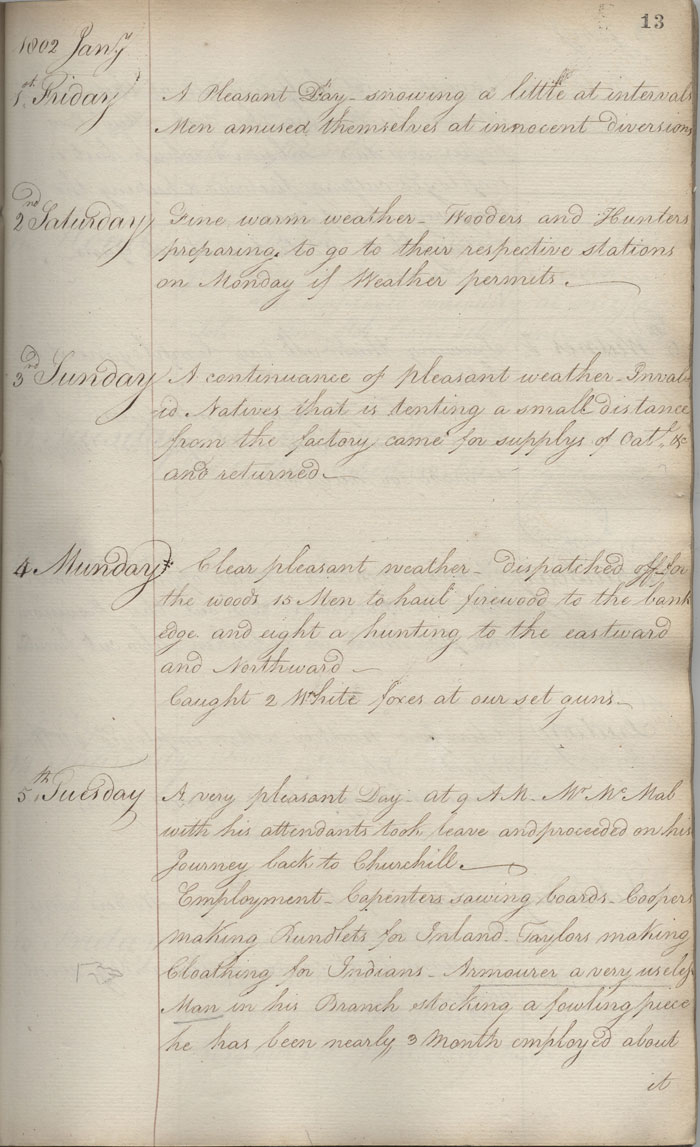 13
1802 Jany
1st Friday A Pleasant Day - snowing a little at intervals
Men amused themselves at innocent diversions
2nd Saturday Fine warm weather - Wooders and Hunters
preparing to go to their respective stations
on Monday if Weather permits.
3rd Sunday A continuance of pleasant weather - Inval
id Natives that is tenting a small distance
from the factory came for supplys of Oatl. &c
and returned -
4 Munday Clear pleasant weather - dispatched off for
the woods 15 Men to haul firewood to the bank
edge and eight a hunting to the eastward
and Northward -
Caught 2 White foxes at our set guns -
5th Tuesday A very pleasant Day - at 9 A.M. Mr. Mc Nab
with his attendants took leave and proceeded on his
Journey back to Churchill.
Employment - Capenters sawing boards - Coopers
making Rundlets for Inland - Taylors making
Cloathing for Indians - Armourer a very useless
Man in his Branch stocking a fowling piece
he has been nearly 3 Month employed about
it